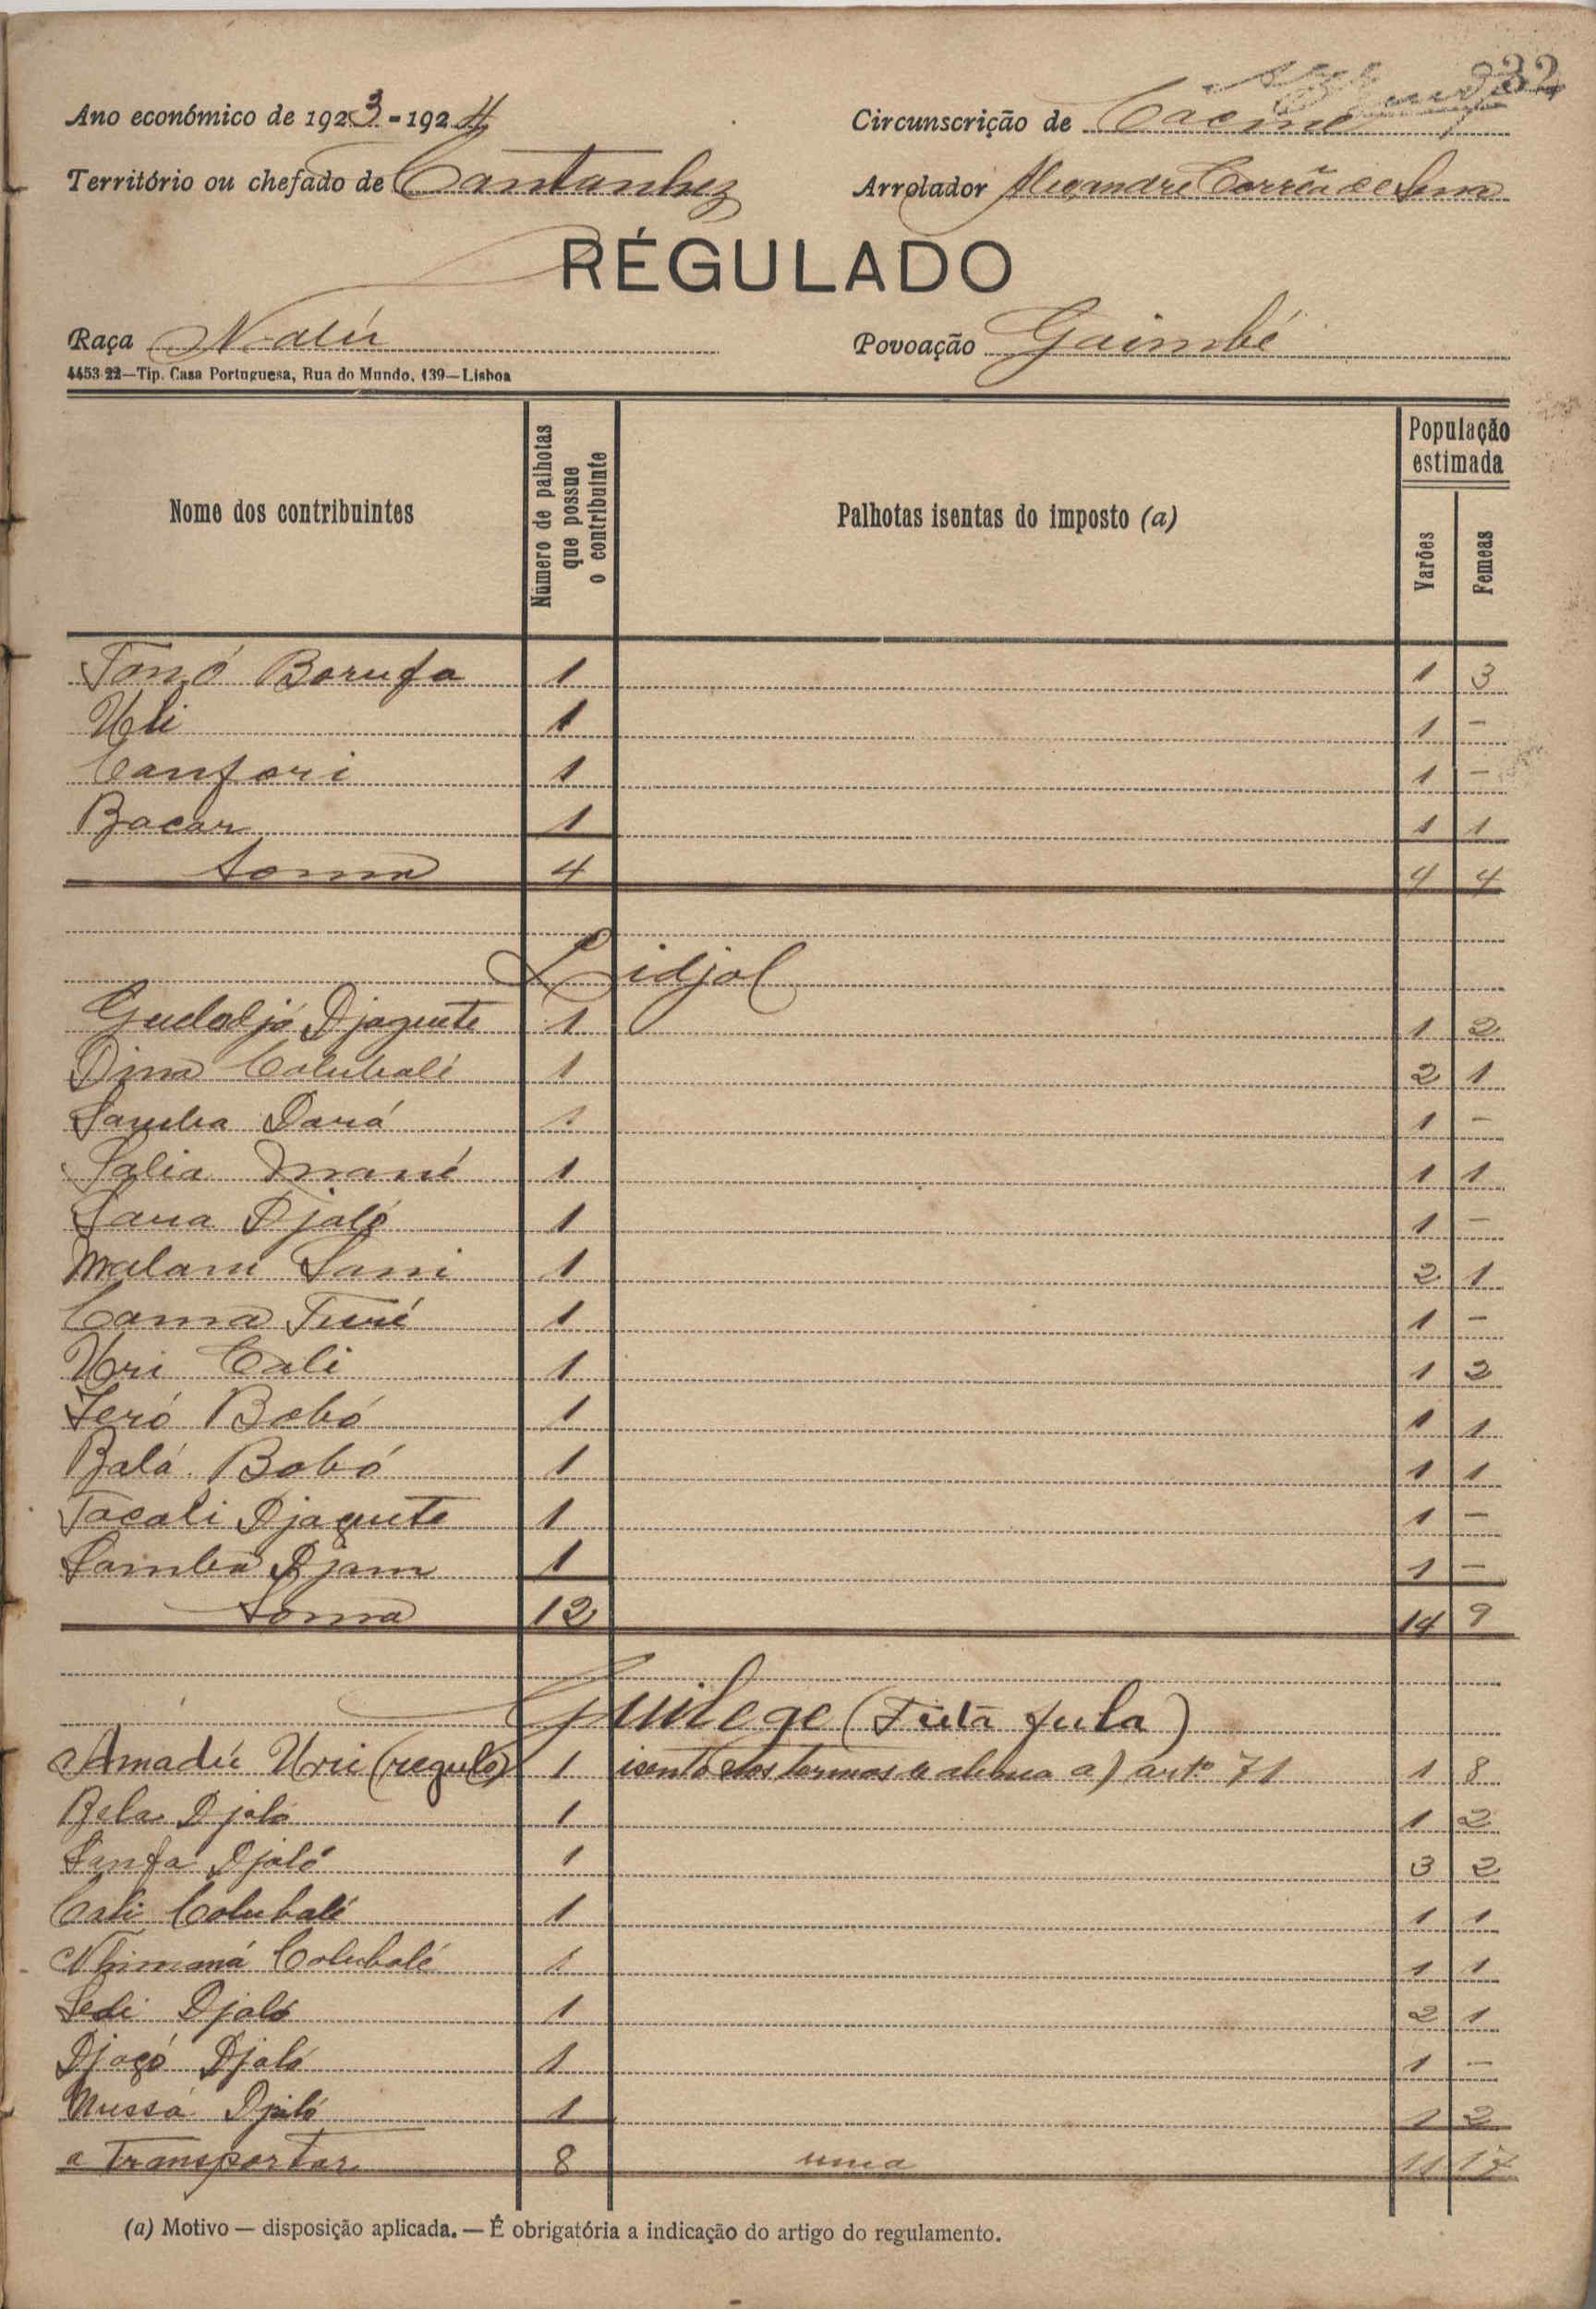 32
Ano económico de 1923-1924 Circunscrição de Cacine
Território ou chefado de Cantanhez Arrolador Alexandre Corrêa de Sena
RÉGULADO
Raça Nalú Povoação Gaimbé
4453-22—Tip. Casa Portuguesa, Rua do Mundo, 139—Lisboa
Nome dos contribuintes Número de palhotas que possue o contribuinte Palhotas isentas do imposto (a) População estimada Varões Femeas
Tonó Borufa 1 1 3
Uli 1 1 -
Canfori 1 1 -
Bacar 1 1 1
Soma 4 4 4
Lidjol
Gudadjá Djaquete 1 1 2
Dima Colubalé 1 2 1
Samba Dará 1 1 -
Salia Mané 1 1 1
Sara Djaló 1 1 -
Malam Sani 1 2 1
Cama Turé 1 1 -
Uri Cali 1 1 2
Seró Bobó 1 1 1
Balá Bobó 1 1 1
Tacali Djaquete 1 1 -
Samba Djam 1 1 -
Soma 12 14 9
Guilege (Futa fula)
Amadú Uri (regulo) 1 isento nos termos da alinea a) artº 71 1 8
Bela Djaló 1 1 2
Sanfa Djaló 1 3 2
Cali Colubalé 1 1 1
Nhimmá Colubalé 1 1 1
Sedi Djaló 1 2 1
Djogó Djaló 1 1 -
Mussá Djaló 1 1 2
a Transportar 8 uma 11 17
(a) Motivo — disposição aplicada. — É obrigatória a indicação do artigo do regulamento.